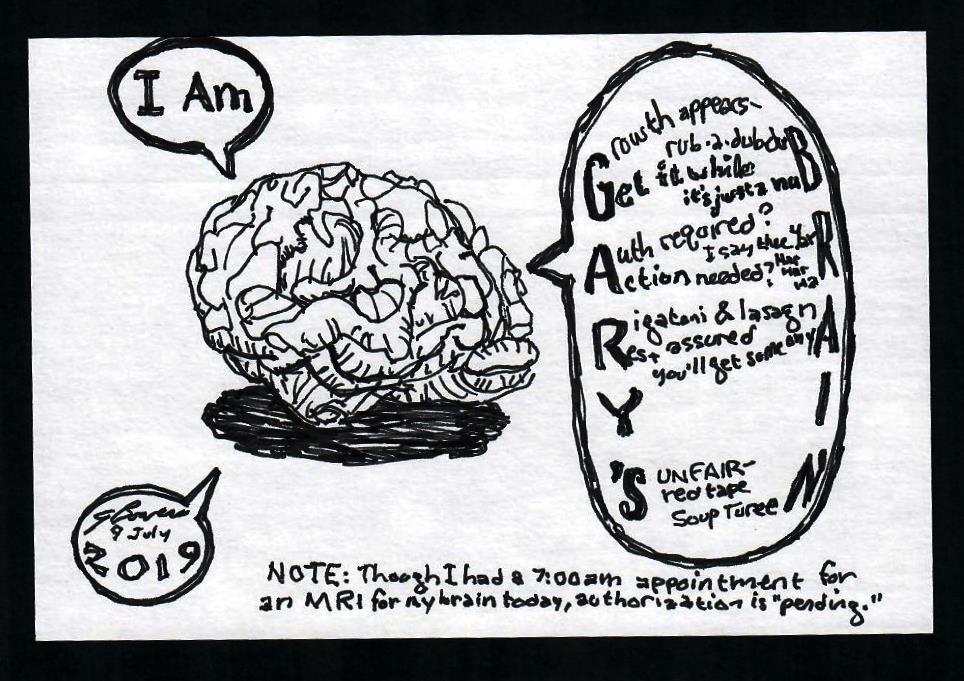 I Am
Growth appears-
rub-a-dub dub
Get it while
it's just a nub
Auth required?
I say thee Yar
Action needed? Har Har Har
Rigatoni & lasagna
Rest assured
you'll get some
Y I
'S UNFAIR-
red tape
Soup Tureen
9 July
2019
NOTE: Though I had a 7:00am appointment for
an MRI for my brain today, authorization is "pending."